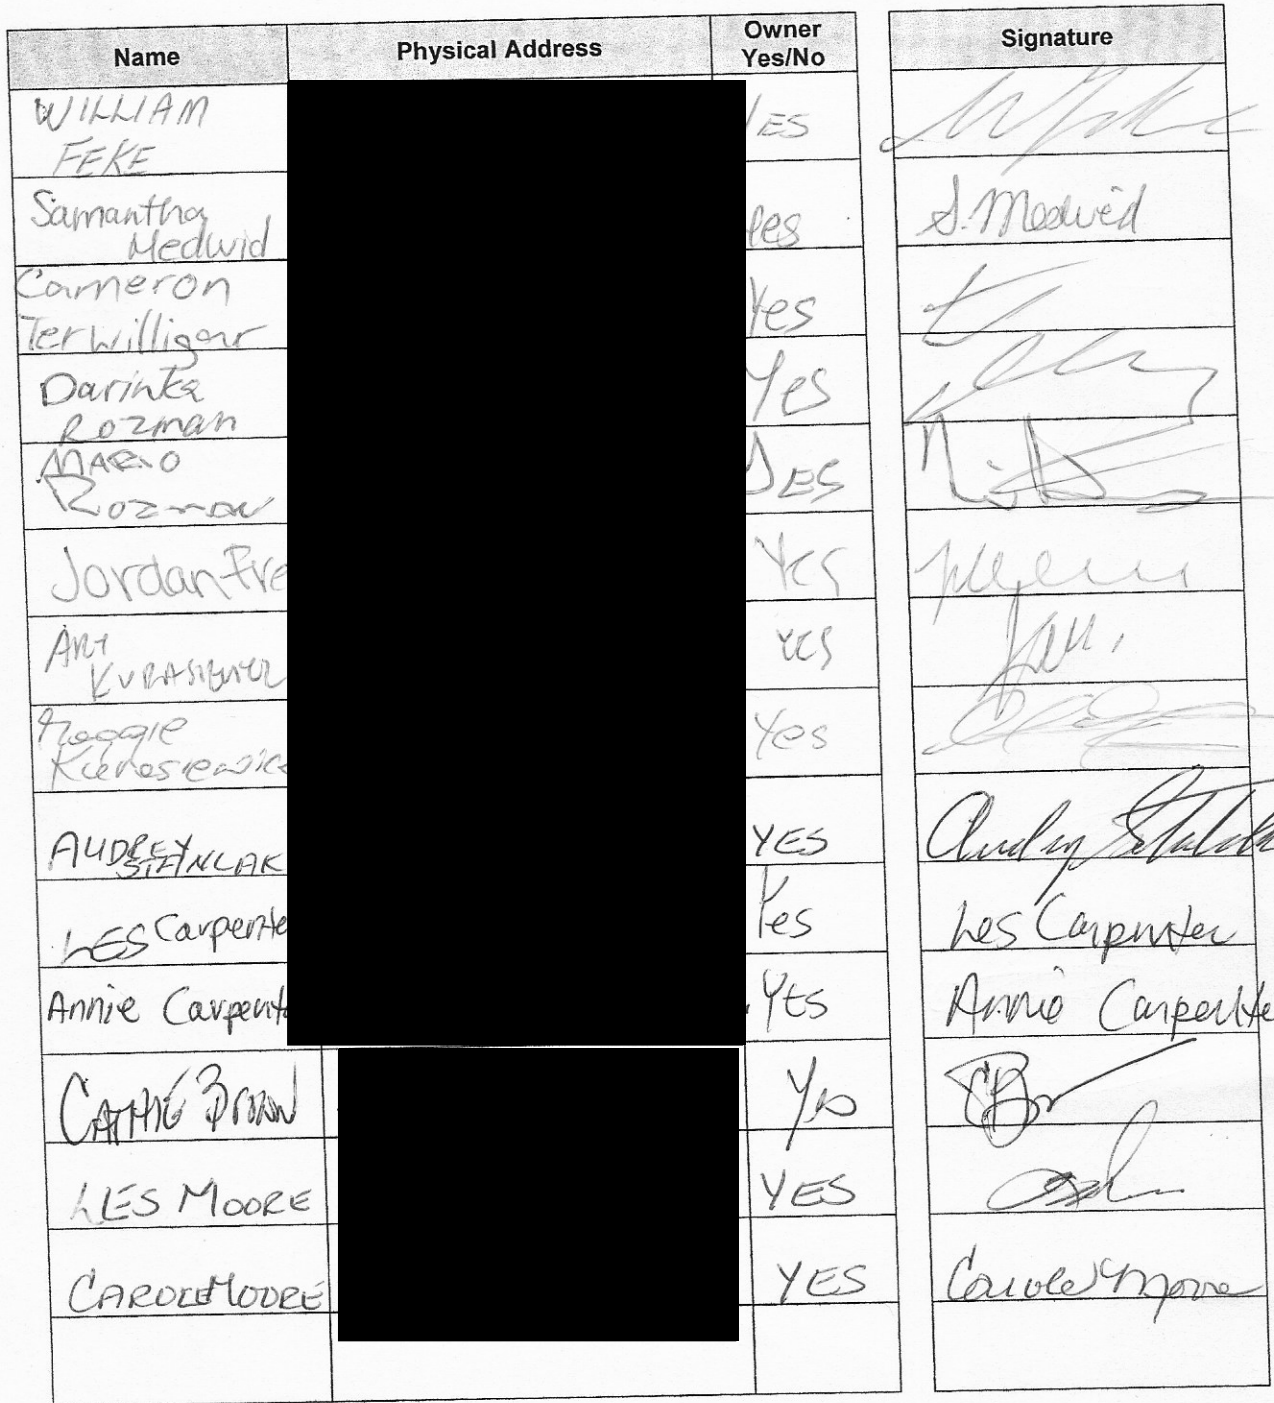 Name Physical Address Owner Yes/No Signature
WILLIAM FEKE YES
Samantha Medwid Yes S. Medwid
Cameron Terwilligar Yes
Darinka Rozman Yes
MARIO ROZMAN YES
Jordan Fre Yes
ART YES
Maggie Yes
AUDREY YES Audrey
LES Carpente Yes Les Carpenter
Annie Carpente Yes Annie Carpente
CATHIE BROWN Yes
LES MOORE YES
CAROLE MOORE YES Carole Moore